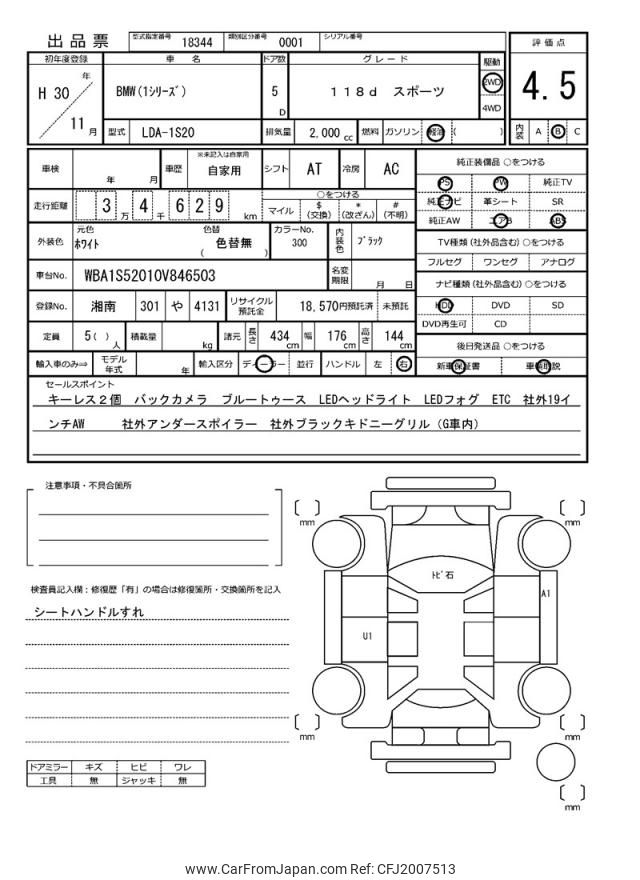 出品票 型式指定番号 18344 類別区分番号 0001 シリアル番号
初年度登録 車名 ドア数 グレード 駆動 評価点
H 30 年 BMW(1シリーズ) 5 D 118d スポーツ 2WD 4.5
4WD
11 月 型式 LDA-1S20 排気量 2,000 cc 燃料 ガソリン 軽油 ( ) 内装 A B C
車検 年 月 車歴 ※未記入は自家用 自家用 シフト AT 冷房 AC 純正装備品 ○をつける
PS PW 純正TV
走行距離 3 万 4 千 6 2 9 km ○をつける
マイル $(交換) *(改ざん) #(不明)
純正ナビ 革シート SR
純正AW エアB ABS
外装色 元色 ホワイト 色替 色替無 ( ) カラーNo. 300 内装色 ブラック
TV種類(社外品含む)○をつける
フルセグ ワンセグ アナログ
車台No. WBA1S52010V846503 名変期限 月 日
ナビ種類(社外品含む)○をつける
登録No. 湘南 301 や 4131 リサイクル預託金 18,570円預託済 未預託
HDD DVD SD
DVD再生可 CD
定員 5( ) 人 積載量 kg 諸元 長さ 434 cm 幅 176 cm 高さ 144 cm
後日発送品 ○をつける
輸入車のみ⇒ モデル年式 年 輸入区分 ディーラー 並行 ハンドル 左 右
新車保証書 車輌取説
セールスポイント
キーレス2個 バックカメラ ブルートゥース LEDヘッドライト LEDフォグ ETC 社外19イ
ンチAW 社外アンダースポイラー 社外ブラックキドニーグリル(G車内)
注意事項・不具合箇所
mm
mm
トビ石
検査員記入欄:修復歴「有」の場合は修復箇所・交換箇所を記入
A1
シートハンドルすれ
U1
mm
mm
ドアミラー キズ ヒビ ワレ
工具 無 ジャッキ 無
mm
www.CarFromJapan.com Ref: CFJ2007513